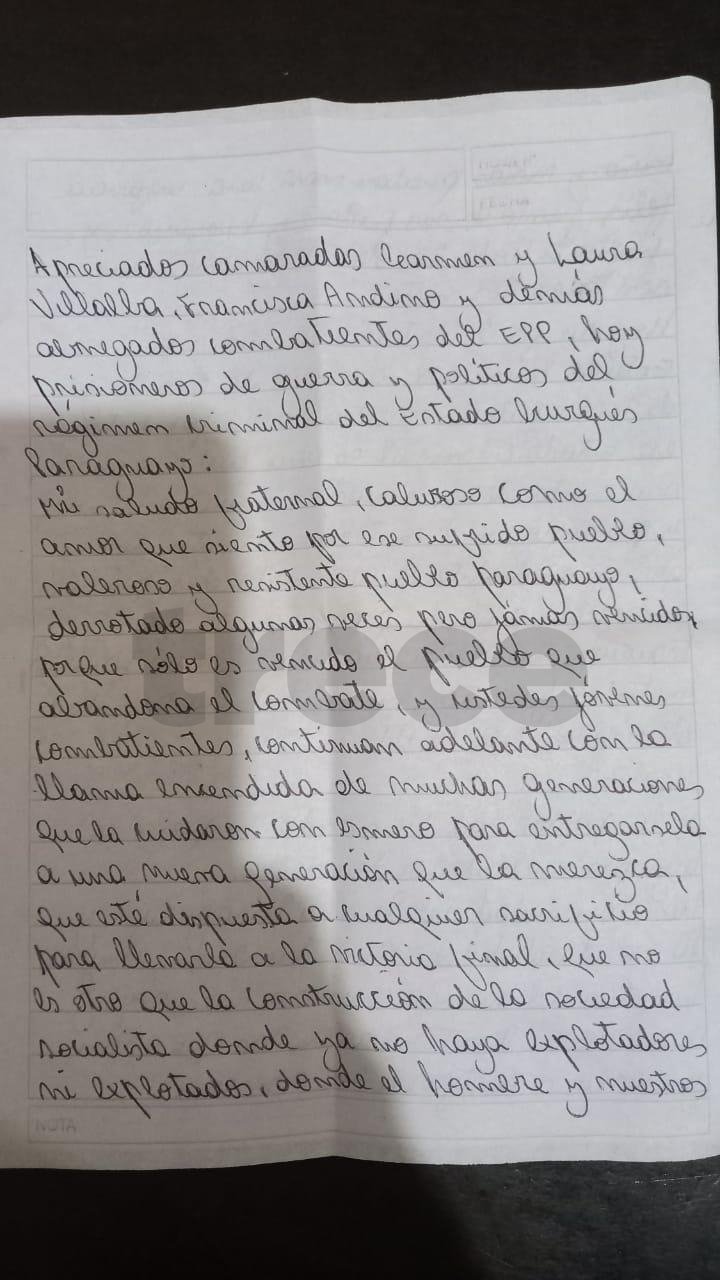 Apreciados camaradas Carmen y Laura
Villalba, Francisca Andino y demás
abnegados combatientes del EPP, hoy
prisioneros de guerra y políticos del
régimen criminal del Estado burgués
Paraguayo:
Mi saludo fraternal, caluroso como el
amor que siento por ese sufrido pueblo,
valeroso y resistente pueblo paraguayo,
derrotado algunas veces pero jamás vencido,
porque sólo es vencido el pueblo que
abandona el combate, y ustedes jóvenes
combatientes, continuan adelante con la
llama encendida de muchas generaciones
que la cuidaron con esmero para entregarsela
a una nueva generación que la merezca,
que esté dispuesta a cualquier sacrificio
para llevarla a la victoria final, que no
es otro que la construcción de la sociedad
socialista donde ya no haya explotadores
ni explotados, donde el hombre y nuestros
NOTA
trece